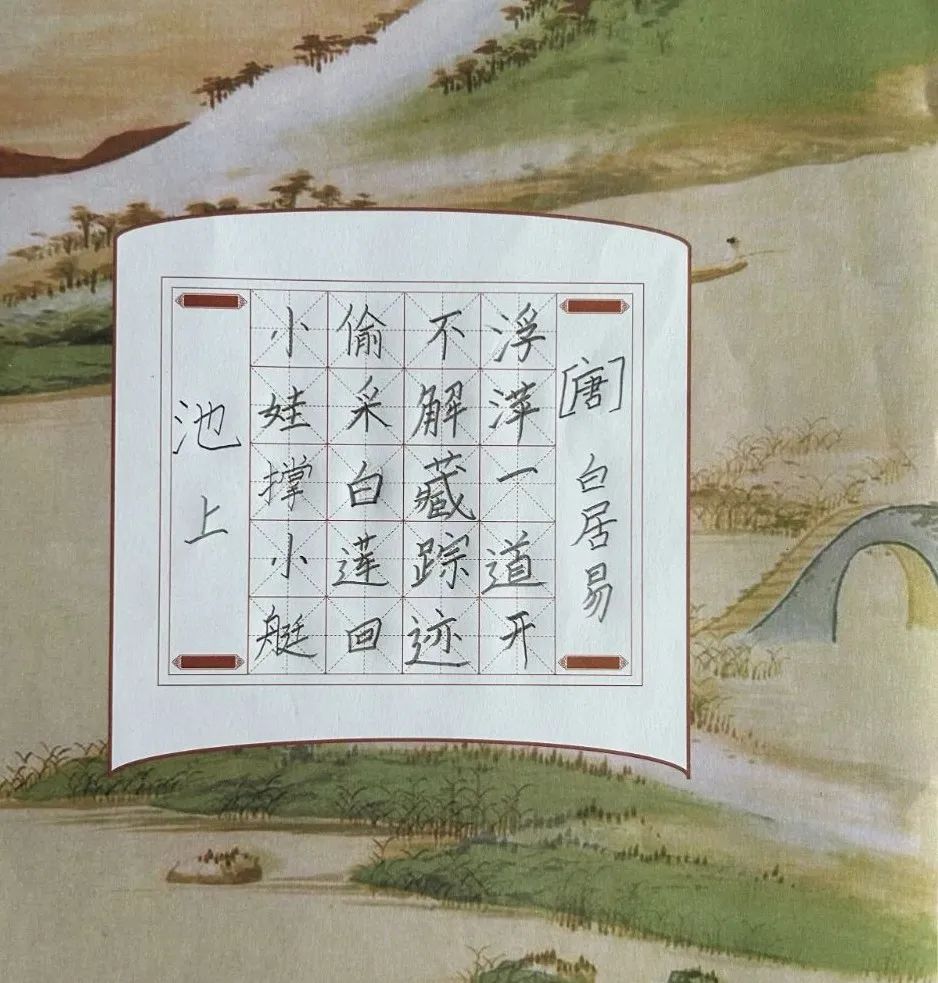 池上
小娃撑小艇
偷采白莲回
不解藏踪迹
浮萍一道开
[唐] 白居易